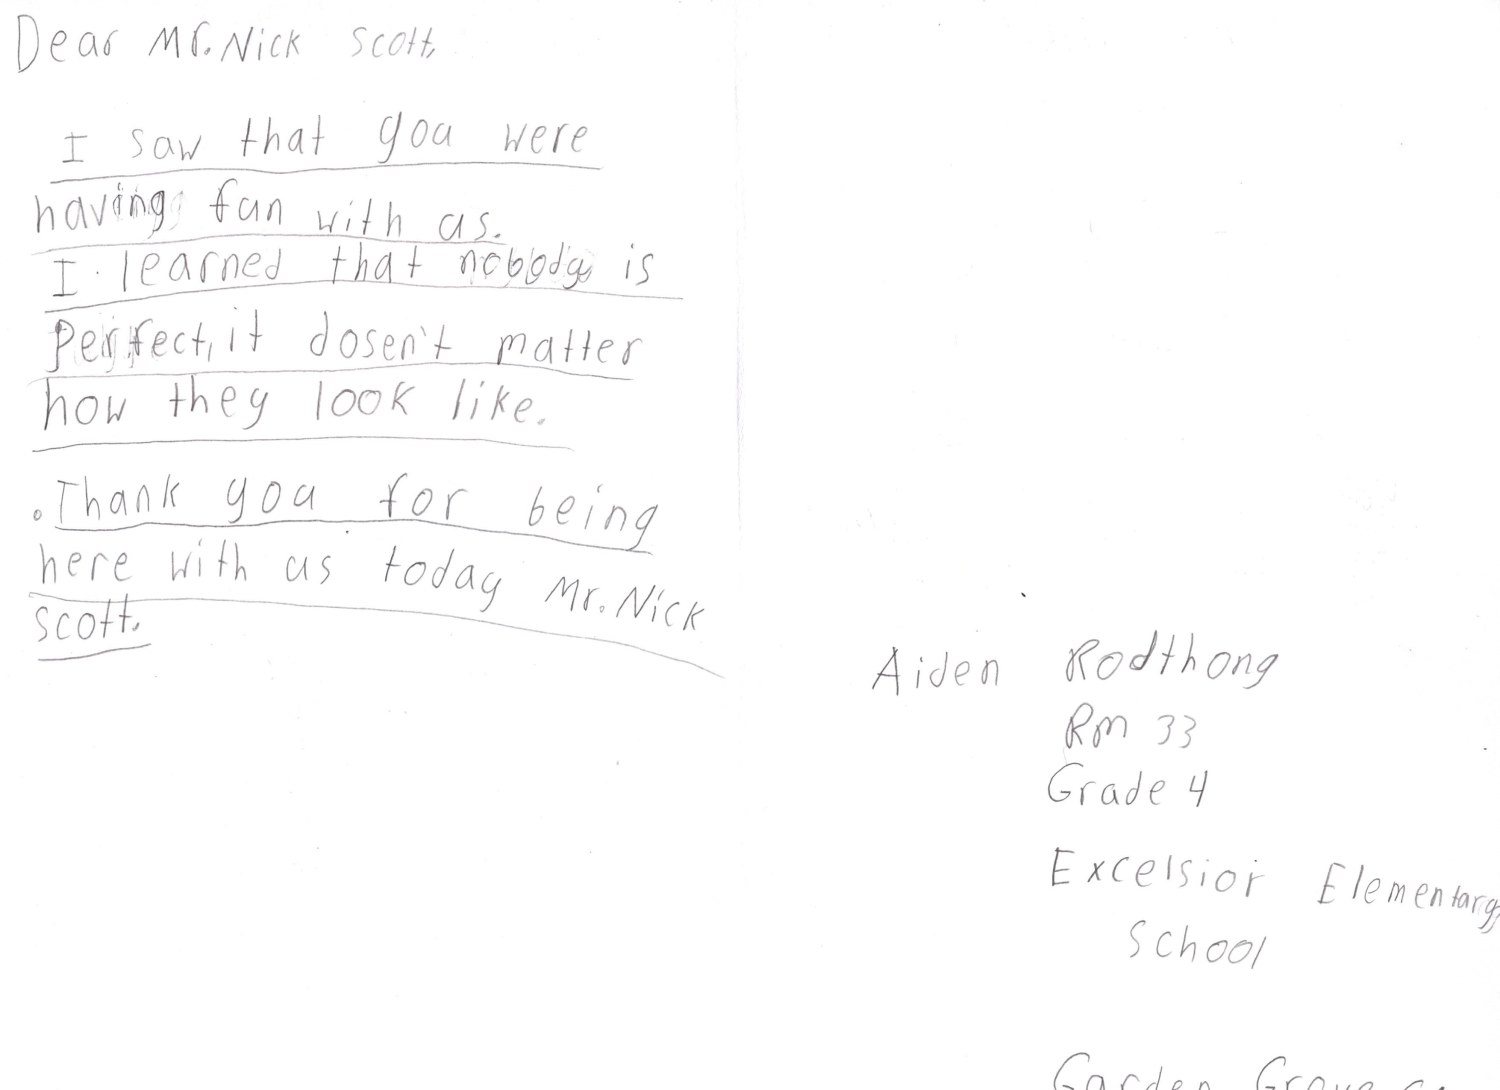 Dear Mr. Nick Scott,
I saw that you were
having fun with us.
I learned that nobody is
Perfect, it dosen't matter
how they look like.
. Thank you for being
here with us today Mr. Nick
Scott.
Aiden Rodthong
Rm 33
Grade 4
Excelsior Elementary
School
Garden Grove